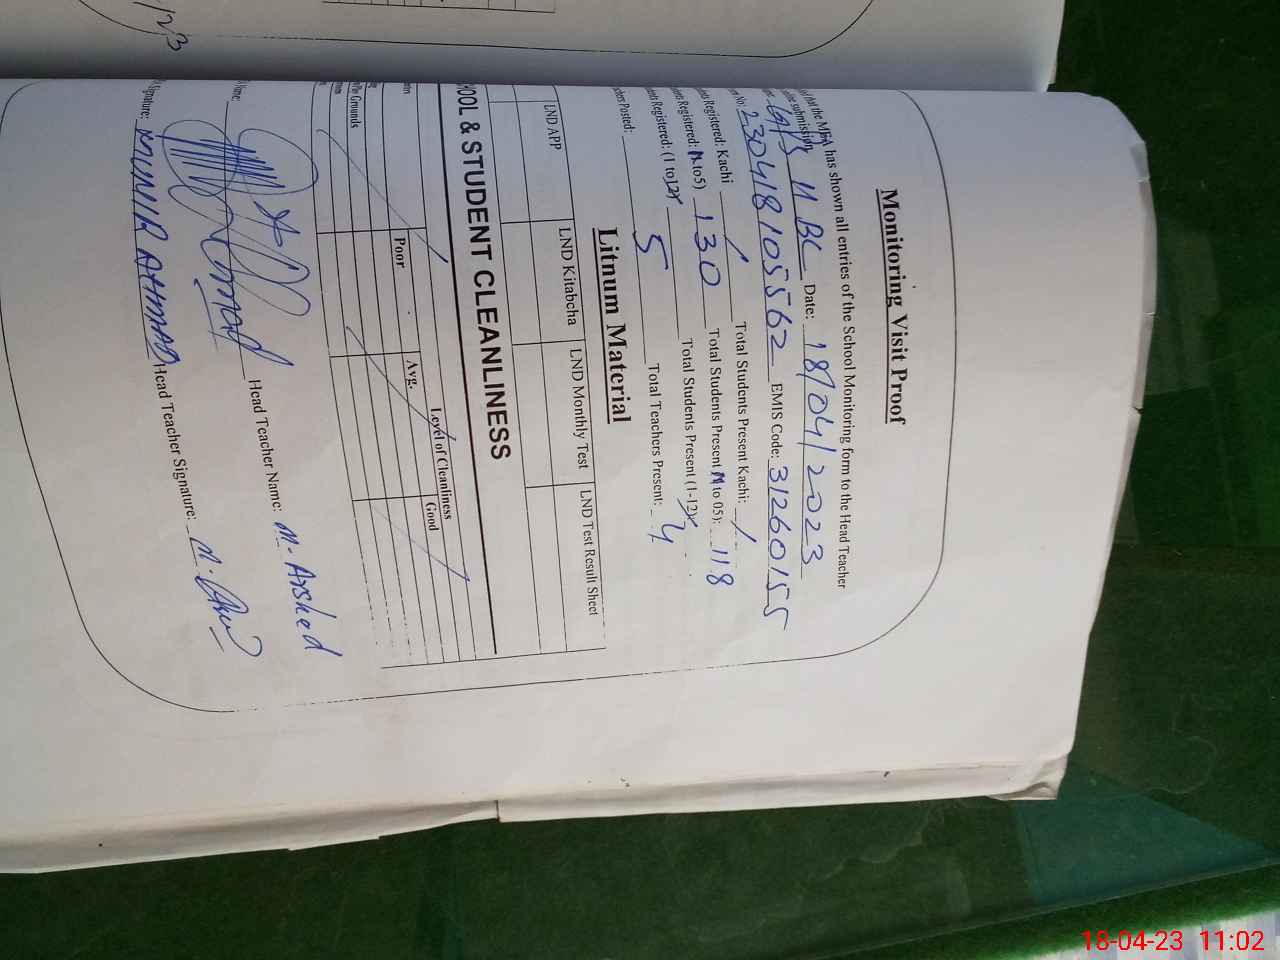 /23
Monitoring Visit Proof
that the MEA has shown all entries of the School Monitoring form to the Head Teacher
submission.
GPS 11 BC Date: 18/04/2023
No: 230418105562 EMIS Code: 31260155
Registered: Kachi / Total Students Present Kachi: /
Registered: (N to5) 130 Total Students Present (N to 05): 118
Registered: (1 to12) Total Students Present (1-12)
Posted: 5 Total Teachers Present: 4
Litnum Material
LND APP LND Kitabcha LND Monthly Test LND Test Result Sheet
OOL & STUDENT CLEANLINESS
Level of Cleanliness
Poor Avg. Good
Grounds
Head Teacher Name: M. Arshed
Signature: MUNIR AHMAD Head Teacher Signature:
18-04-23 11:02